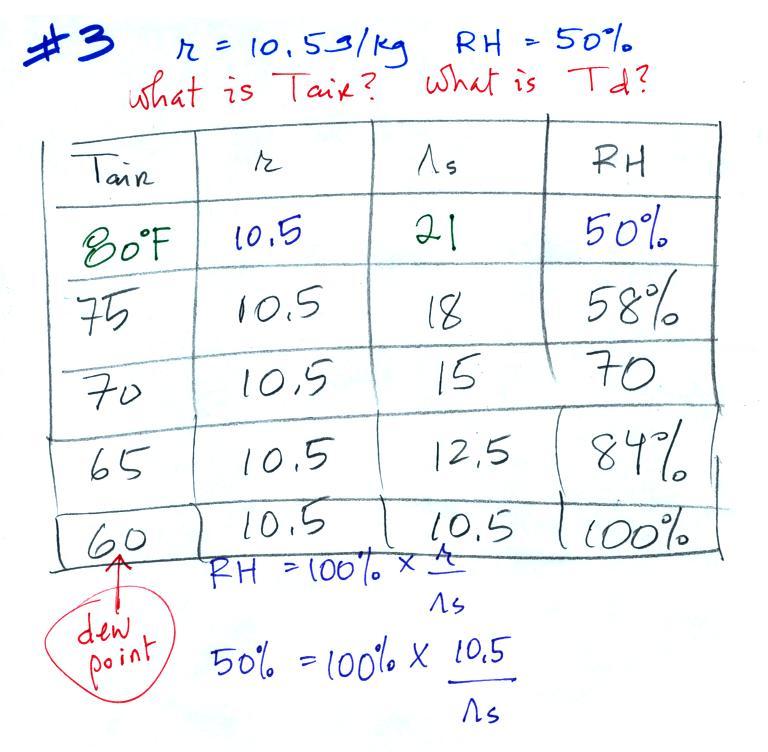 #3 r = 10.5 g/kg RH = 50%
What is Tair? What is Td?
Tair r rs RH
80°F 10.5 21 50%
75 10.5 18 58%
70 10.5 15 70
65 10.5 12.5 84%
60 10.5 10.5 100%
RH = 100% × r
rs
dew
point
50% = 100% × 10.5
rs